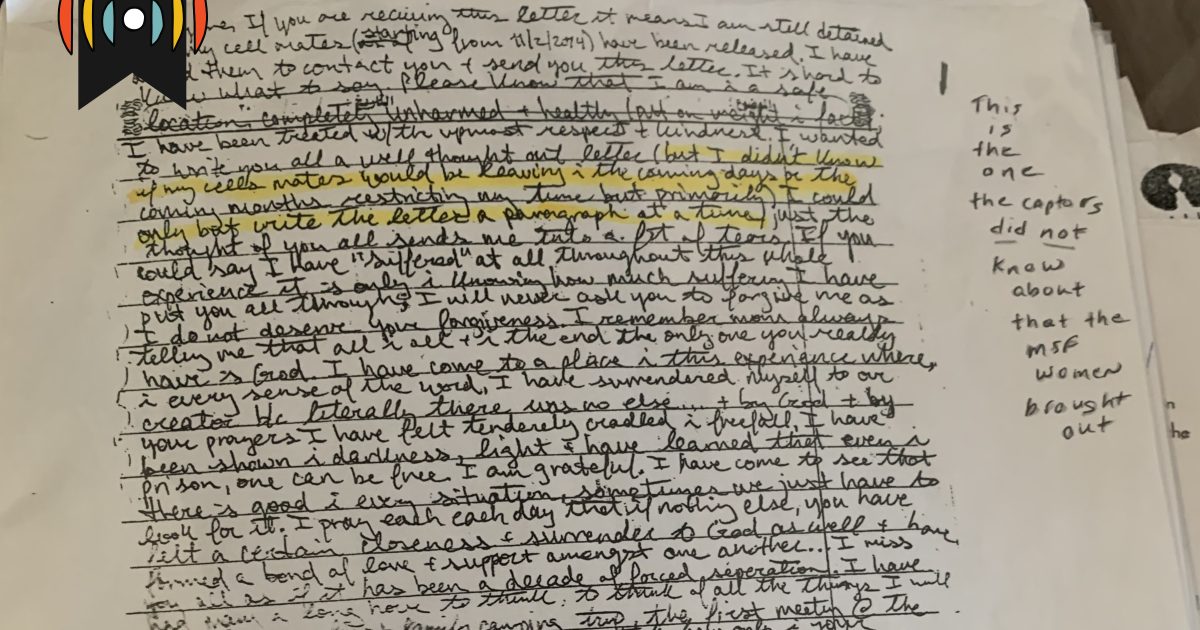 If you are reciving this letter it means I am still detained
cell mates (starting from 11/2/2014) have been released. I have
them to contact you + send you this letter. It's hard to
know what to say. Please know that I am i a safe
location, completely unharmed + healthy (put on weight i fact).
I have been treated w/ the upmost respect + kindness. I wanted
to write you all a well thought out letter (but I didn't know
if my cells mates would be leaving i the coming days or the
coming months restricting my time but primarily) I could
only but write the letter a paragraph at a time, just the
thought of you all sends me into a fit of tears. If you
could say I have "suffered" at all throughout this whole
experience it is only i knowing how much suffering I have
put you all through; I will never ask you to forgive me as
I do not deserve your forgiveness. I remember mom always
telling me that all i all + i the end the only one you really
have is God. I have come to a place i this experience where,
i every sense of the word, I have surrendered myself to our
creator b/c literally there was no else... + by God + by
your prayers I have felt tenderly cradled i freefall. I have
been shown i darkness, light + have learned that even i
prison, one can be free. I am grateful. I have come to see that
there is good i every situation, sometimes we just have to
look for it. I pray each each day that if nothing else, you have
felt a certain closeness + surrender to God as well + have
formed a bond of love + support amongst one another... I miss
you all as if it has been a decade of forced seperation. I have
had many a long hour to think, to think of all the things I will
family camping trip, the first meeting @ the
This
is
the
one
the captors
did not
know
about
that the
MSF
women
brought
out